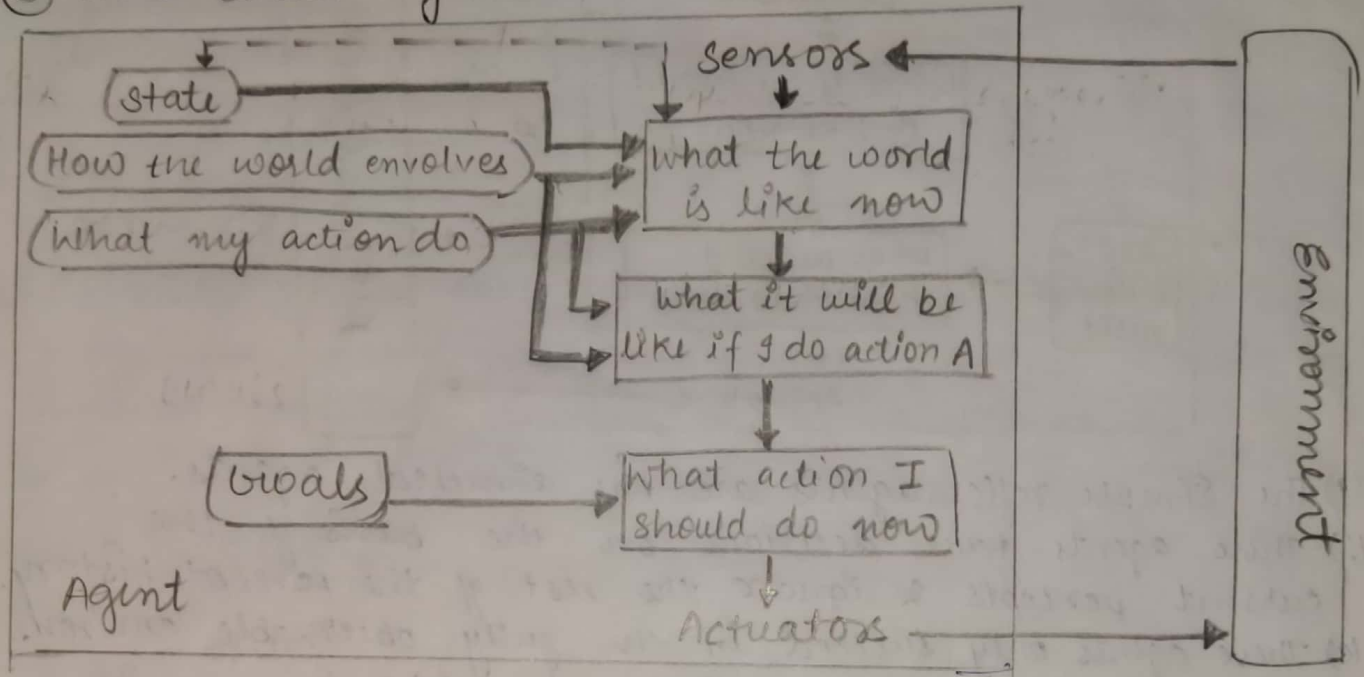 sensors
state
How the world envolves
What my action do
what the world
is like now
what it will be
like if I do action A
Goals
what action I
should do now
Agent
Actuators
Enviroment